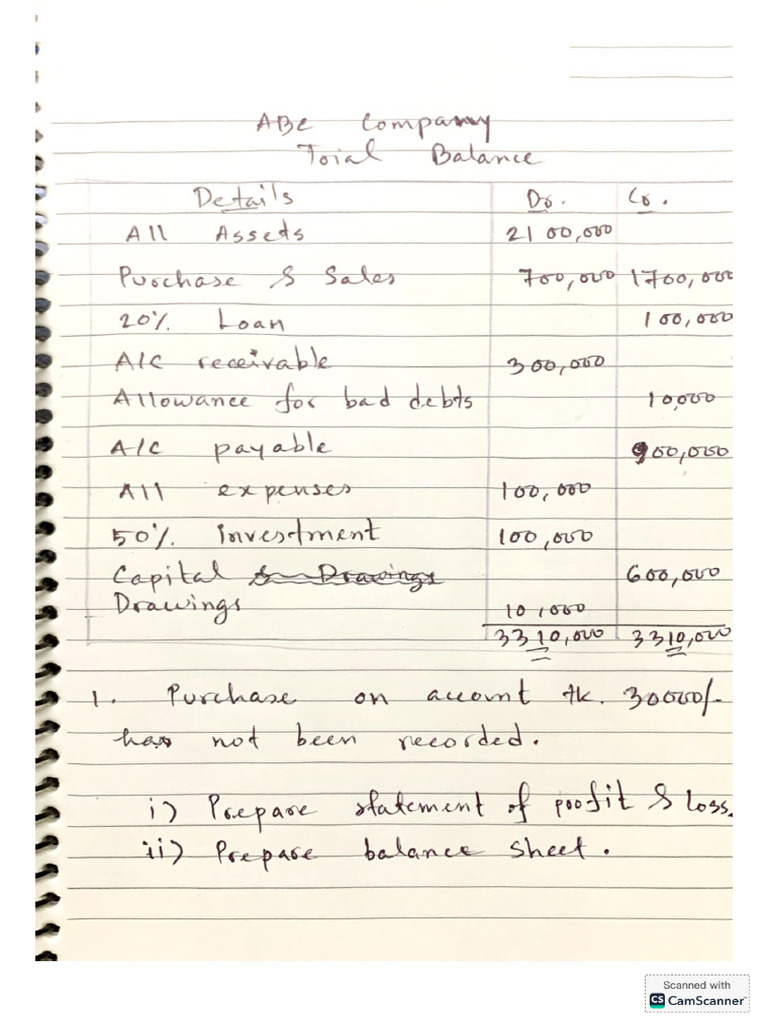 ABC Company
Trial Balance
Details Dr. Cr.
All Assets 2100,000
Purchase & Sales 700,000 1700,000
20% Loan 100,000
A/C receivable 300,000
Allowance for bad debts 10,000
A/C payable 900,000
All expenses 100,000
50% investment 100,000
Capital & Drawings 600,000
Drawings 10,000
3310,000 3310,000
1. Purchase on account tk. 30000/-
has not been recorded.
i) Prepare statement of profit & loss.
ii) Prepare balance sheet.
Scanned with
CS CamScanner